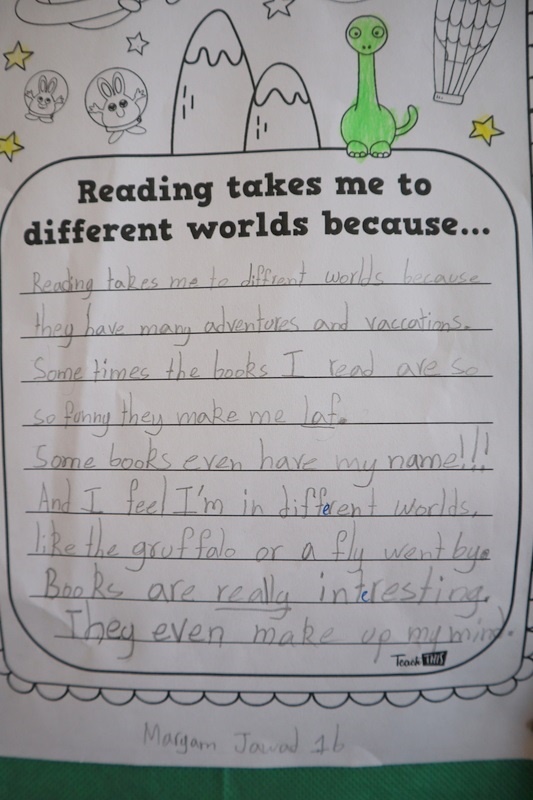 Reading takes me to
different worlds because...
Reading takes me to diffrent worlds because
they have many adventures and vaccations.
Some times the books I read are so
so funny they make me laf.
Some books even have my name!!!
And I feel I'm in different worlds,
like the gruffalo or a fly went by.
Books are really interesting.
They even make up my mind.
Teach THIS
Maryam Jawad 1b